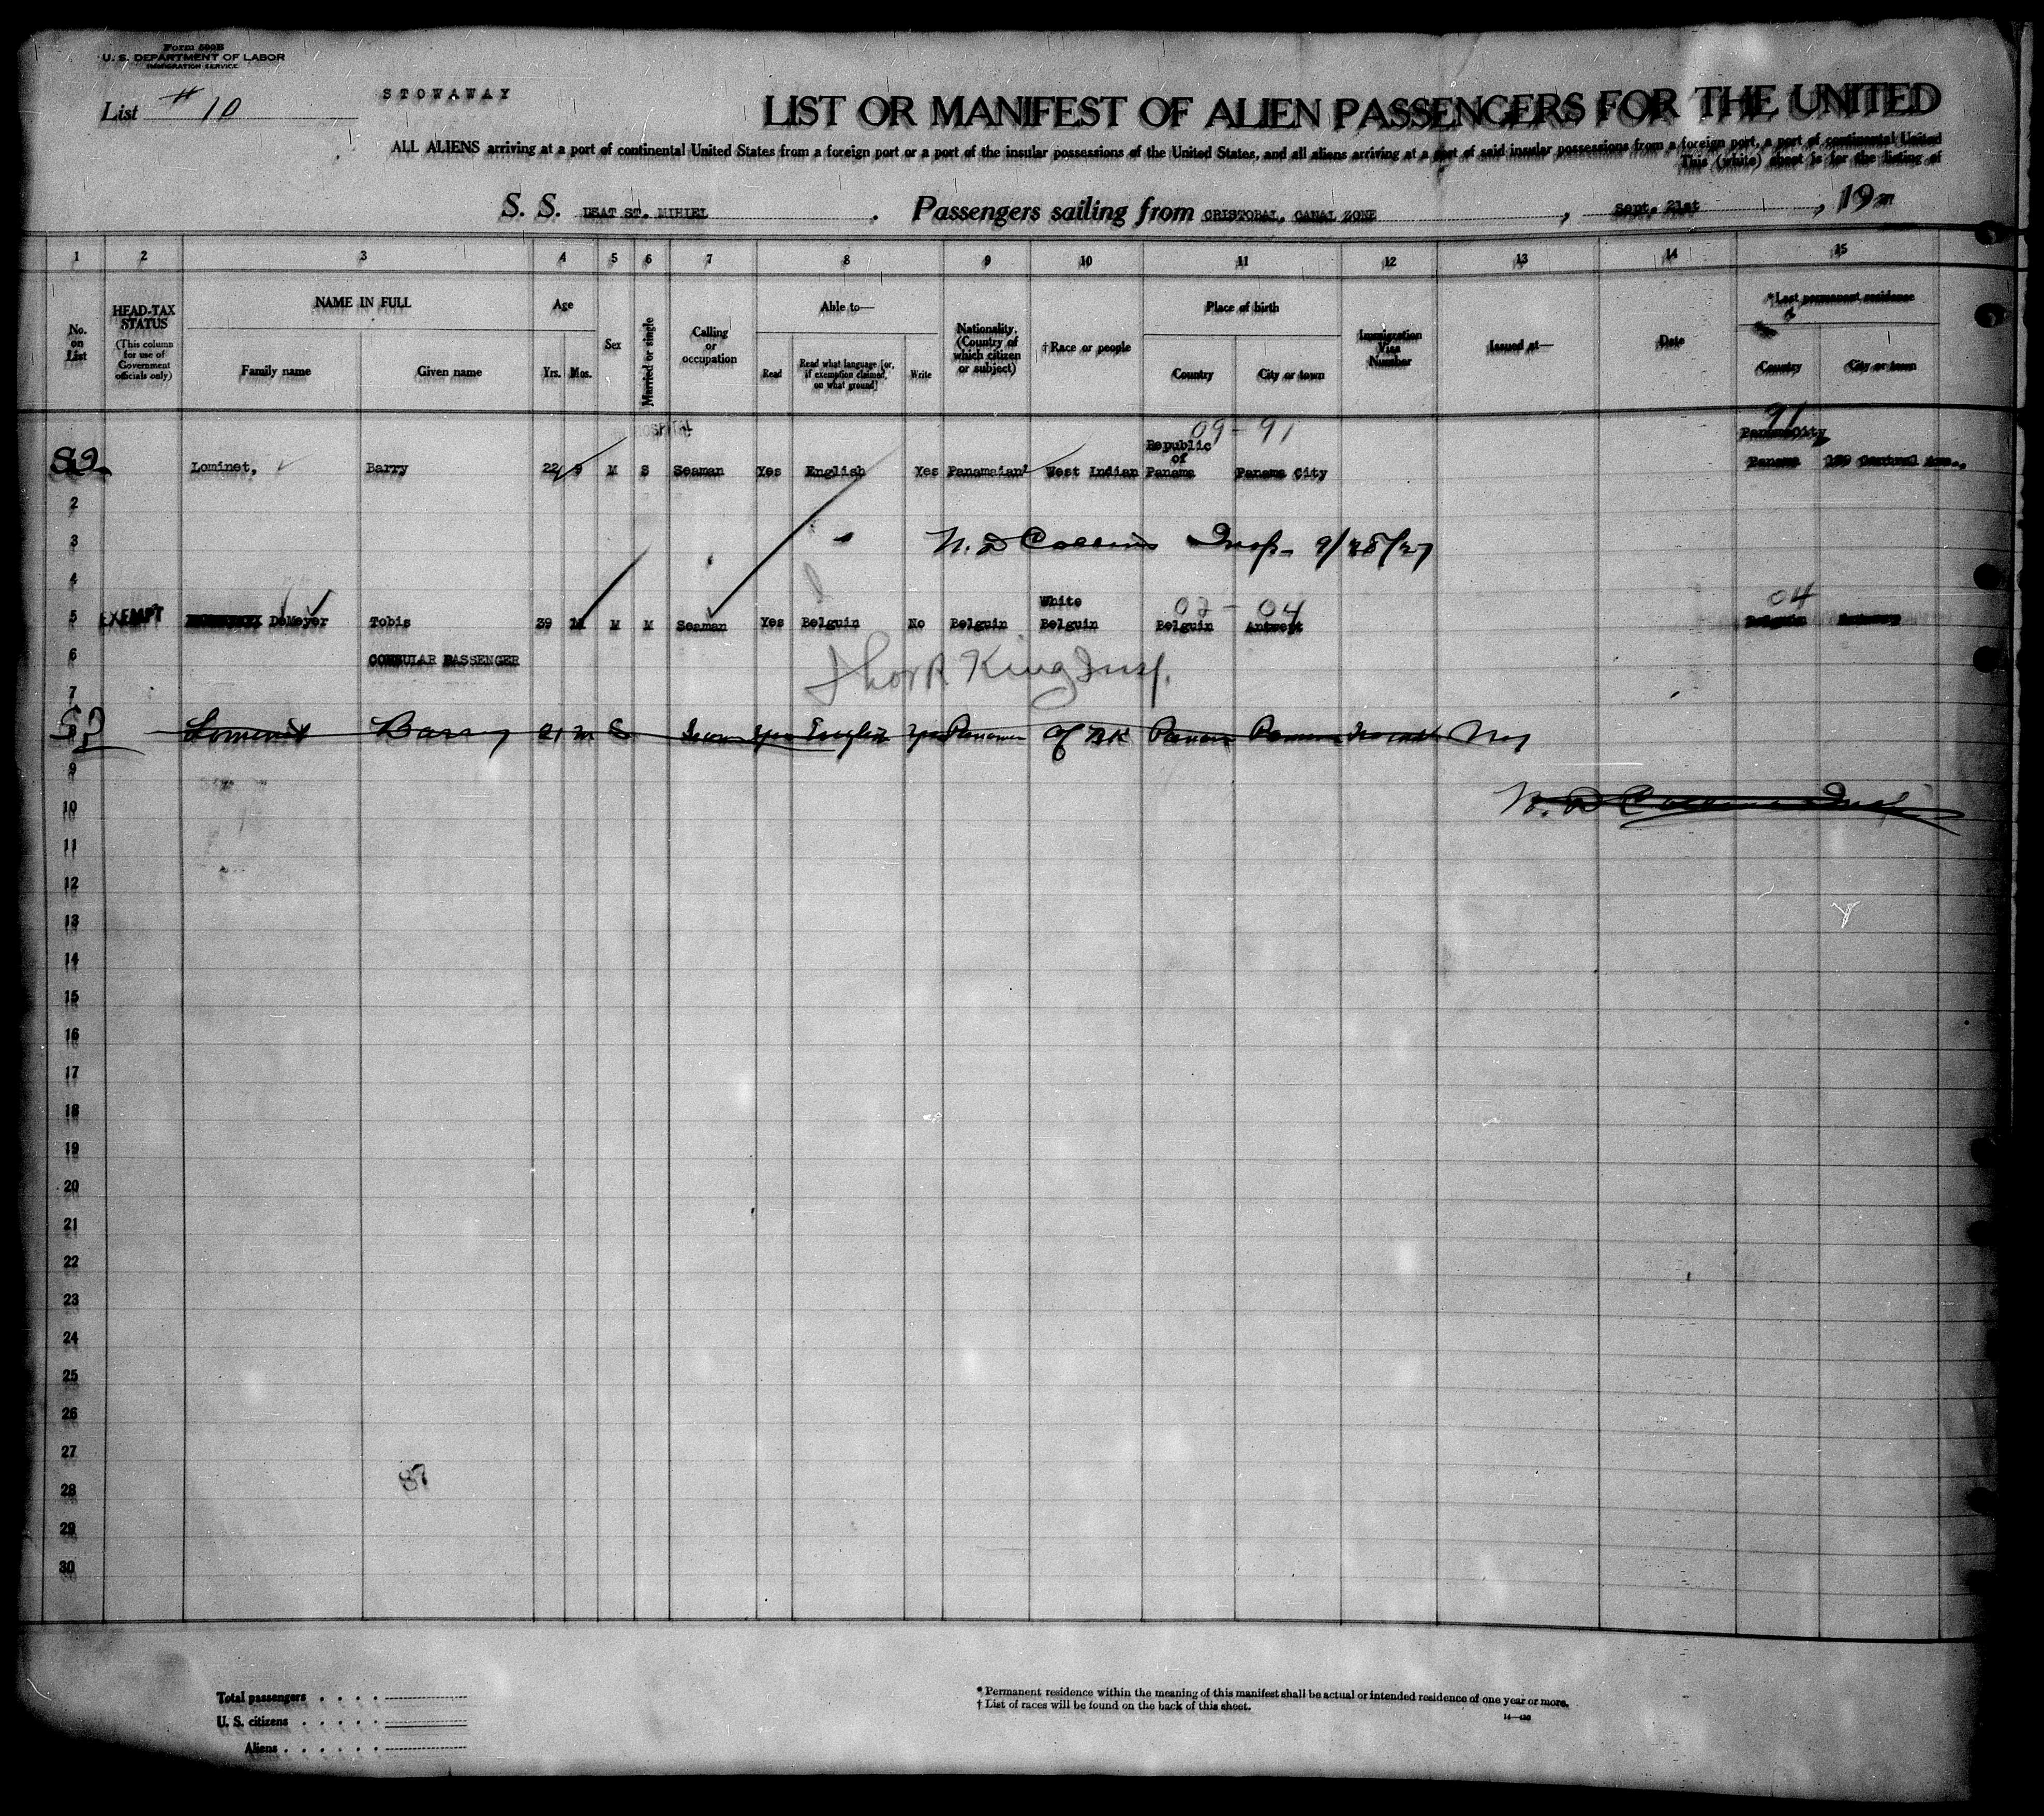 Form 500B
U. S. DEPARTMENT OF LABOR
IMMIGRATION SERVICE
List # 10
STOWAWAY
LIST OR MANIFEST OF ALIEN PASSENGERS FOR THE UNITED
ALL ALIENS arriving at a port of continental United States from a foreign port or a port of the insular possessions of the United States, and all aliens arriving at a port of said insular possessions from a foreign port, a port of continental United
This (white) sheet is for the listing of
S. S. USAT ST. MIHIEL . Passengers sailing from CRISTOBAL, CANAL ZONE , Sept. 21st , 19 27
1 2 3 4 5 6 7 8 9 10 11 12 13 14 15
No. on List
HEAD-TAX STATUS (This column for use of Government officials only)
NAME IN FULL
Family name Given name
Age
Yrs. Mos.
Sex
Married or single
Calling or occupation
Able to—
Read Read what language [or, if exemption claimed, on what ground] Write
Nationality. (Country of which citizen or subject)
†Race or people
Place of birth
Country City or town
Immigration Visa Number
Issued at—
Date
*Last permanent residence
Country City or town
HOSPITAL 09 - 91 91
Republic of Panama City
Lominet, Barry 22 9 M S Seaman Yes English Yes Panamaian West Indian Panama Panama City Panama Central Ave.,
2
3 N. D Collins Insp- 9/28/27
4
White 02 - 04 04
5 EXEMPT DeMeyer Tobis 39 11 M M Seaman Yes Belguin No Belguin Belguin Belguin Antwept Belguin Antwerp
6 CONSULAR PASSENGER King Insp.
7
Barry 21 m S yes English yes Panama Panama Ny
9
10 N. D Collins Insp
11
12
13
14
15
16
17
18
19
20
21
22
23
24
25
26
27
28 87
29
30
Total passengers . . . .
U. S. citizens . . . . .
Aliens . . . . . .
* Permanent residence within the meaning of this manifest shall be actual or intended residence of one year or more.
† List of races will be found on the back of this sheet.